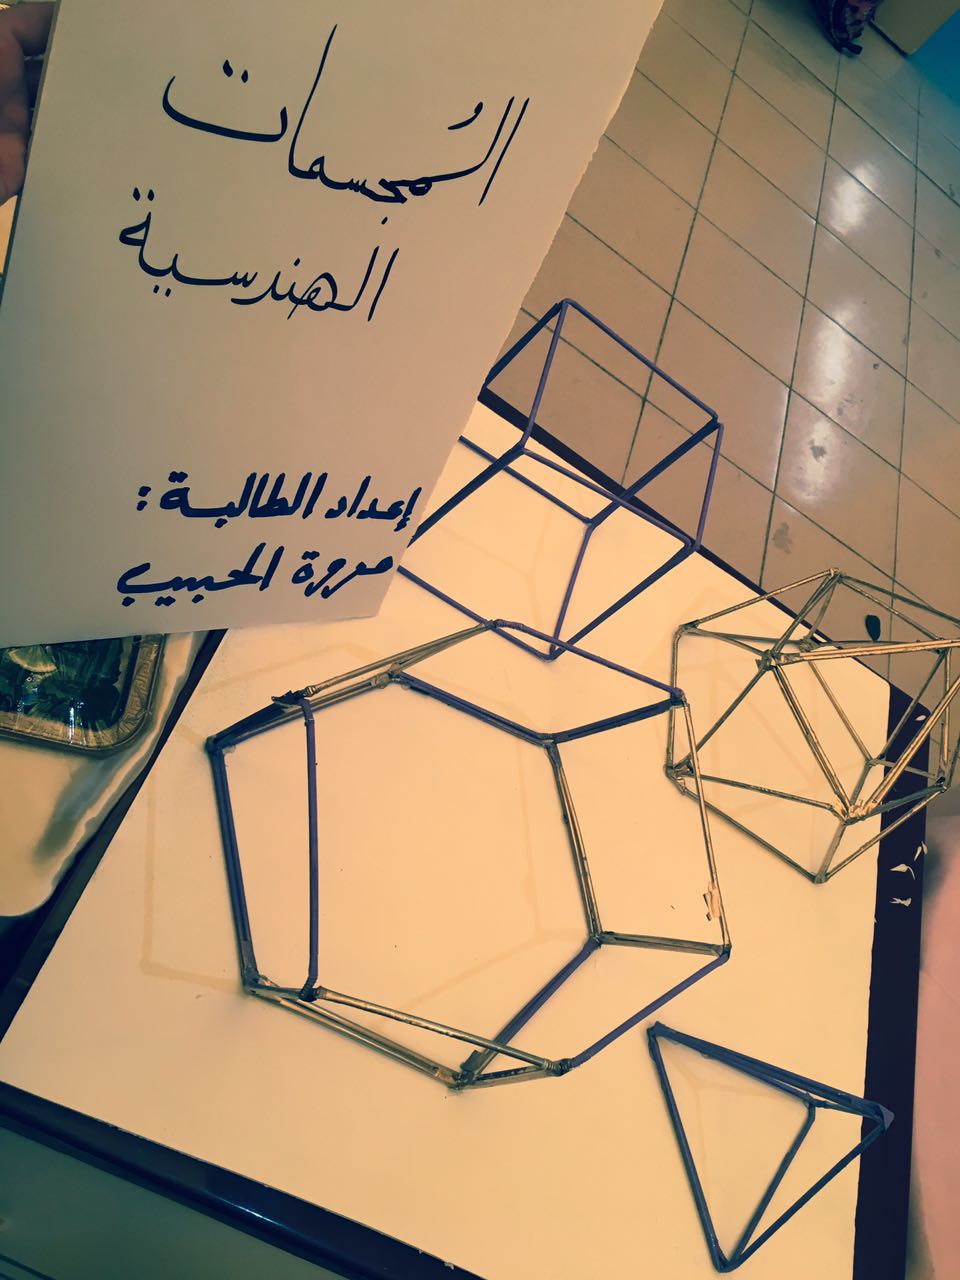 المُجسمات
الهندسية
إعداد الطالبة:
مروة الحبيب